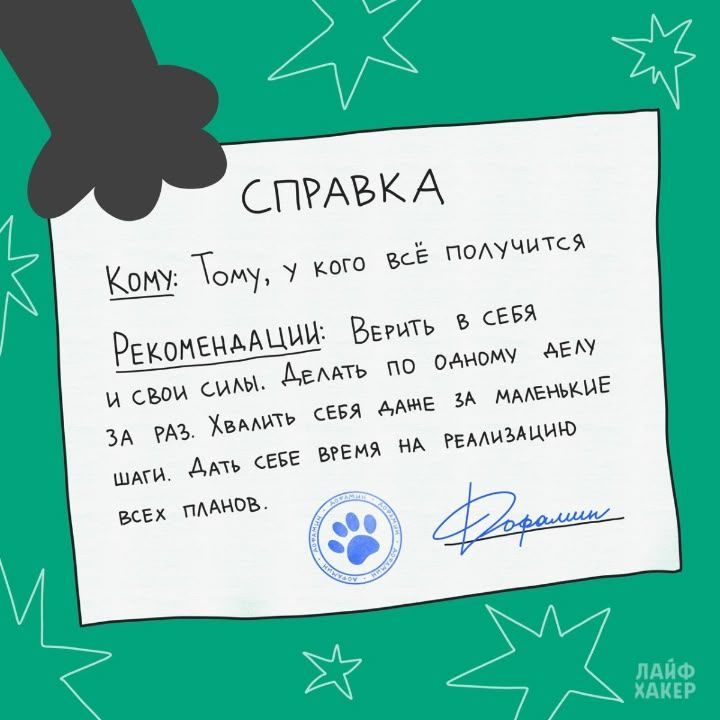 СПРАВКА
Кому: Тому, у кого всё получится
Рекомендации: Верить в себя
и свои силы. Делать по одному делу
за раз. Хвалить себя даже за маленькие
шаги. Дать себе время на реализацию
всех планов.
ДОФАМИН · ДОФАМИН · ДОФАМИН · ДОФАМИН ·
Дофамин
ЛАЙФ
ХАКЕР